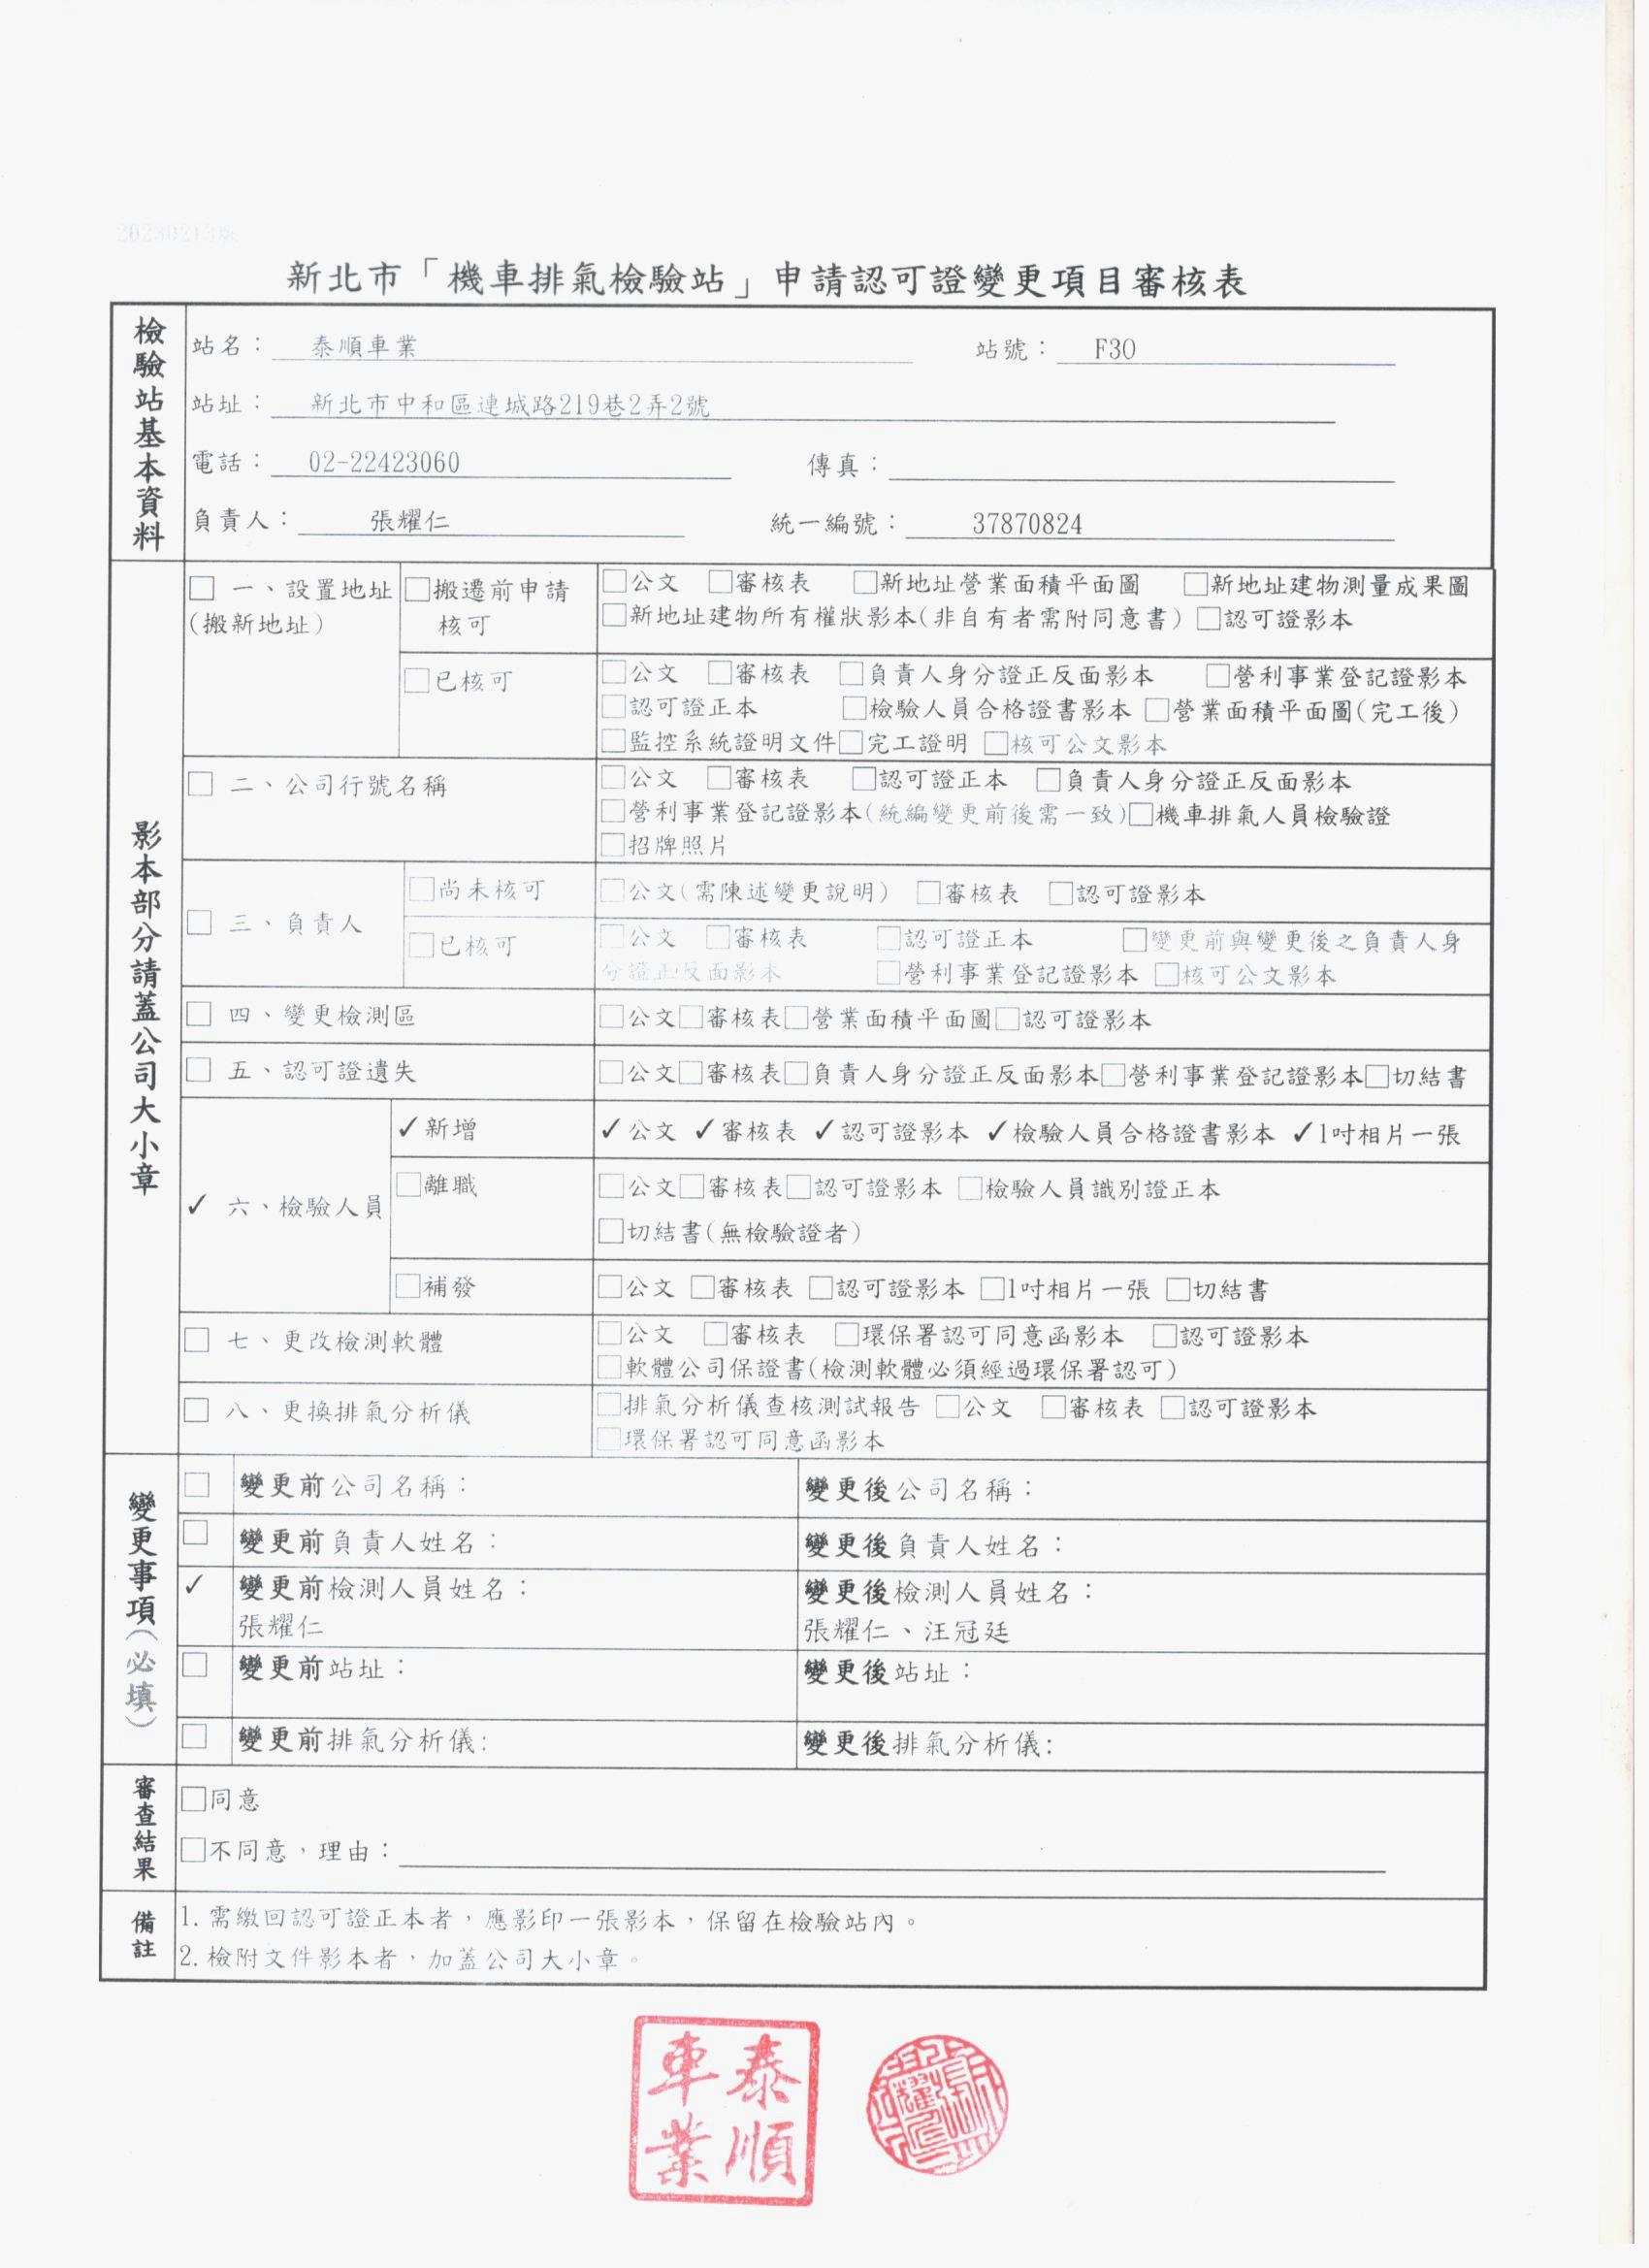 20230213版
新北市「機車排氣檢驗站」申請認可證變更項目審核表
檢驗站基本資料
站名： 泰順車業 站號： F30
站址： 新北市中和區連城路219巷2弄2號
電話： 02-22423060 傳真：
負責人： 張耀仁 統一編號： 37870824
影本部分請蓋公司大小章
□ 一、設置地址(搬新地址)
□搬遷前申請核可
□公文 □審核表 □新地址營業面積平面圖 □新地址建物測量成果圖
□新地址建物所有權狀影本(非自有者需附同意書) □認可證影本
□已核可
□公文 □審核表 □負責人身分證正反面影本 □營利事業登記證影本
□認可證正本 □檢驗人員合格證書影本 □營業面積平面圖(完工後)
□監控系統證明文件□完工證明 □核可公文影本
□ 二、公司行號名稱
□公文 □審核表 □認可證正本 □負責人身分證正反面影本
□營利事業登記證影本(統編變更前後需一致)□機車排氣人員檢驗證
□招牌照片
□ 三、負責人
□尚未核可
□公文(需陳述變更說明) □審核表 □認可證影本
□已核可
□公文 □審核表 □認可證正本 □變更前與變更後之負責人身
分證正反面影本 □營利事業登記證影本 □核可公文影本
□ 四、變更檢測區
□公文□審核表□營業面積平面圖□認可證影本
□ 五、認可證遺失
□公文□審核表□負責人身分證正反面影本□營利事業登記證影本□切結書
✓ 六、檢驗人員
✓新增
✓公文 ✓審核表 ✓認可證影本 ✓檢驗人員合格證書影本 ✓1吋相片一張
□離職
□公文□審核表□認可證影本 □檢驗人員識別證正本
□切結書(無檢驗證者)
□補發
□公文 □審核表 □認可證影本 □1吋相片一張 □切結書
□ 七、更改檢測軟體
□公文 □審核表 □環保署認可同意函影本 □認可證影本
□軟體公司保證書(檢測軟體必須經過環保署認可)
□ 八、更換排氣分析儀
□排氣分析儀查核測試報告 □公文 □審核表 □認可證影本
□環保署認可同意函影本
變更事項(必填)
□ 變更前公司名稱： 變更後公司名稱：
□ 變更前負責人姓名： 變更後負責人姓名：
✓ 變更前檢測人員姓名： 變更後檢測人員姓名：
張耀仁 張耀仁、汪冠廷
□ 變更前站址： 變更後站址：
□ 變更前排氣分析儀: 變更後排氣分析儀:
審查結果
□同意
□不同意，理由：
備註
1.需繳回認可證正本者，應影印一張影本，保留在檢驗站內。
2.檢附文件影本者，加蓋公司大小章。
泰順
車業